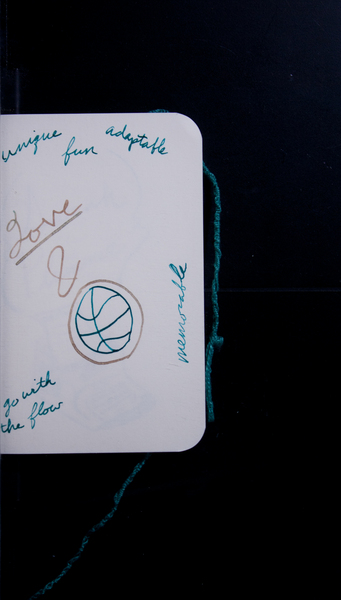 unique
fun
adaptable
Love
&
memorable
go with
the flow